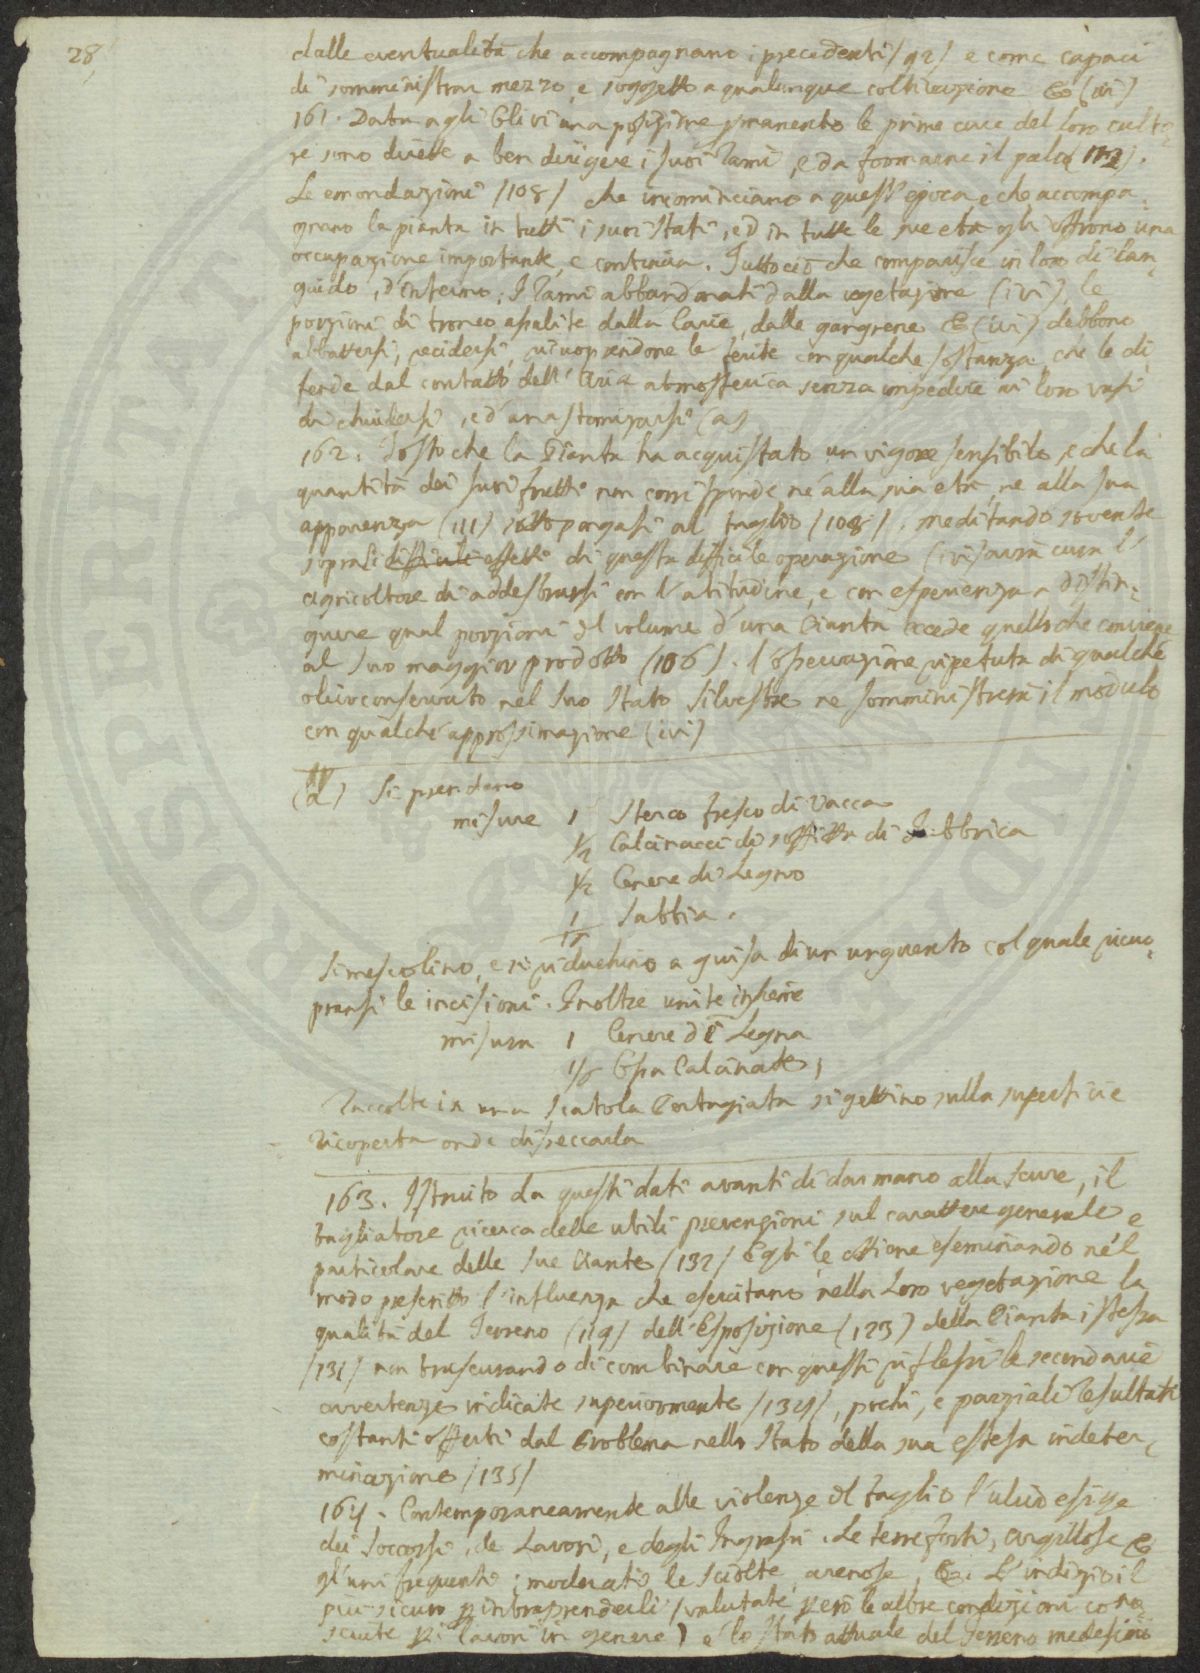 28
dalle eventualità che accompagnano i precedenti /92/ e come capaci
di somministrar mezzo, e soggetto a qualunque coltivazione & (ivi)
161. Data agli Olivi una posizione permanente le prime cure del loro culto-
re sono dirette a ben dirigere i suoi rami, e da formarne il palco (112).
Le emondazioni /108/ che incominciano a quest'epoca e che accompa-
gnano la pianta in tutti i suoi stati, ed in tutte le sue età gli offrono una
occupazione importante, e continua. Tuttociò che comparisce in loro di lan-
guido, d'infermo; I rami abbandonati dalla vegetazione (ivi), le
porzioni di tronco assalite dalla Carie, dalle gangrene & (ivi) debbono
abbattersi, recidersi, ricuoprendone le ferite con qualche sostanza che le di-
fende dal contatto dell'Aria atmosferica senza impedire ai loro vasi
di chiudersi, ed anastomizarsi (a)
162. Tosto che la Pianta ha acquistato un vigore sensibile, e che la
quantità dei suoi frutti non corrisponde nè alla sua età, ne alla sua
apparenza (111) sottopongasi al taglio /108/. meditando sovente
sopra i difficili effetti di questa difficile operazione (ivi) avrà cura l'
agricoltore di addestrarsi con l'attitudine, e con esperienza a distin-
guere qual porzione del volume d'una Pianta eccede quello che conviene
al suo maggior prodotto (106). l'osservazione ripetuta di qualche
olivo conservato nel suo stato silvestre ne somministrerà il modulo
con qualche approssimazione (ivi)
(a) Si prendano
misure 1 Sterco fresco di Vacca
1/2 Calcinacci di soffitta di Fabbrica
1/2 Cenere di Legno
Sabbia.
Si mescolino, e si riduchino a guisa di un unguento col quale ricuo-
pransi le incisioni. Inoltre unite insieme
misura 1 Cenere di Legna
Ossa Calcinate;
Raccolte in una scatola si gettino sulla superficie
ricoperta onde disseccarla
163. Istruito da questi dati avanti di dar mano alla scure, il
tagliatore ricerca delle utili prevenzioni sul carattere generale e
particolare delle sue Piante /132/ Egli le ottiene esaminando nel
modo prescritto l'influenza che esercitano nella loro vegetazione la
qualità del Terreno (119) dell'Esposizione (123) della Pianta istessa
/131/ non trascurando di combinare con questi riflessi le secondarie
avvertenze indicate superiormente /134/, pochi, e parziali resultati
costanti offerti dal Problema nello stato della sua estesa indeter-
minazione /135/
164. Contemporaneamente alle violenze del taglio l'ulivo esige
dei Soccorsi, de Lavori, e degli Ingrassi. Le terre forti, argillose &
gl'uni frequenti; moderati le sciolte, arenose, &. L'indizio il
più sicuro per intraprenderli (valutate però le altre condizioni cono-
sciute pei lavori in genere) è lo stato attuale del Terreno medesimo